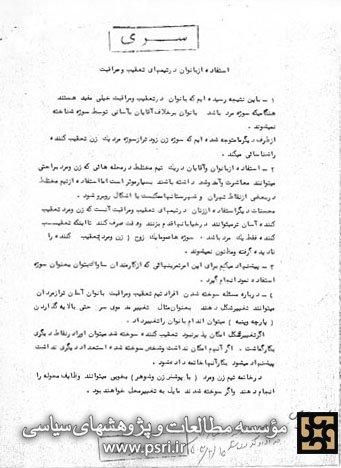 سری
استفاده از بانوان در تیمهای تعقیب و مراقبت
۱ - باین نتیجه رسیده ایم که بانوان در تعقیب و مراقبت خیلی مفید هستند
هنگامیکه سوژه مرد باشد بانوان برخلاف آقایان بآسانی توسط سوژه شناخته
نمیشوند .
از طرف دیگر ما متوجه شده ایم که سوژه زن زودتر از سوژه مرد یک زن تعقیب کننده
را شناسائی میکند .
۲ - استفاده از بانوان و آقایان در یک تیم مختلط در محله هائی که زن و مرد براحتی
میتوانند معاشرت و آمد و شد داشته باشند بسیار موثر است اما استفاده از تیم مختلط
در بعضی از نقاط تهران و شهرستانها ممکنست با اشکال روبرو شود .
محسنات دیگر استفاده از زنان در تیمهای تعقیب و مراقبت آنست که زن و مرد تعقیب
کننده آسان تر میتوانند در خیابانها قدم بزنند و وقت صرف کنند تا اینکه تعقیب
کننده فقط یک مرد باشد . سوژه ها عموما یک زوج ( زن و مرد ) تعقیب کننده را
نادیده گرفته و مظنون نمیشوند .
۳ - پیشنهاد میکنم برای این امر تمرینهائی که از کارمندان ساواک بتوان بعنوان سوژه
استفاده نمود انجام گیرد .
۴ - درباره مسئله سوخته شدن افراد تیم تعقیب و مراقبت بانوان آسان تر از مردان
میتوانند تغییر شکل دهند بعنوان مثال تغییر مد موی سر حتی بالایه گذاردن
( پارچه و پنبه ) میتوان اندام بانوان را تغییر داد .
اگر تغییر شکل امکان پذیر نبود تعقیب کننده سوخته شده میتوان او را در نقاط دیگری
بکار گماشت . اگر آنهم امکان نداشت و شخص سوخته شده استعداد دیگری نداشت
پیشنهاد میشود بکار آنها خاتمه داده شود .
در خاتمه تیم زن و مرد ( با پوشش زن و شوهر ) بخوبی میتوانند وظایف محوله را
انجام دهند و اگر سوخته شدند مایل به تغییر محل خواهند بود .
مؤسسه مطالعات و پژوهشهای سیاسی
www.psri.ir